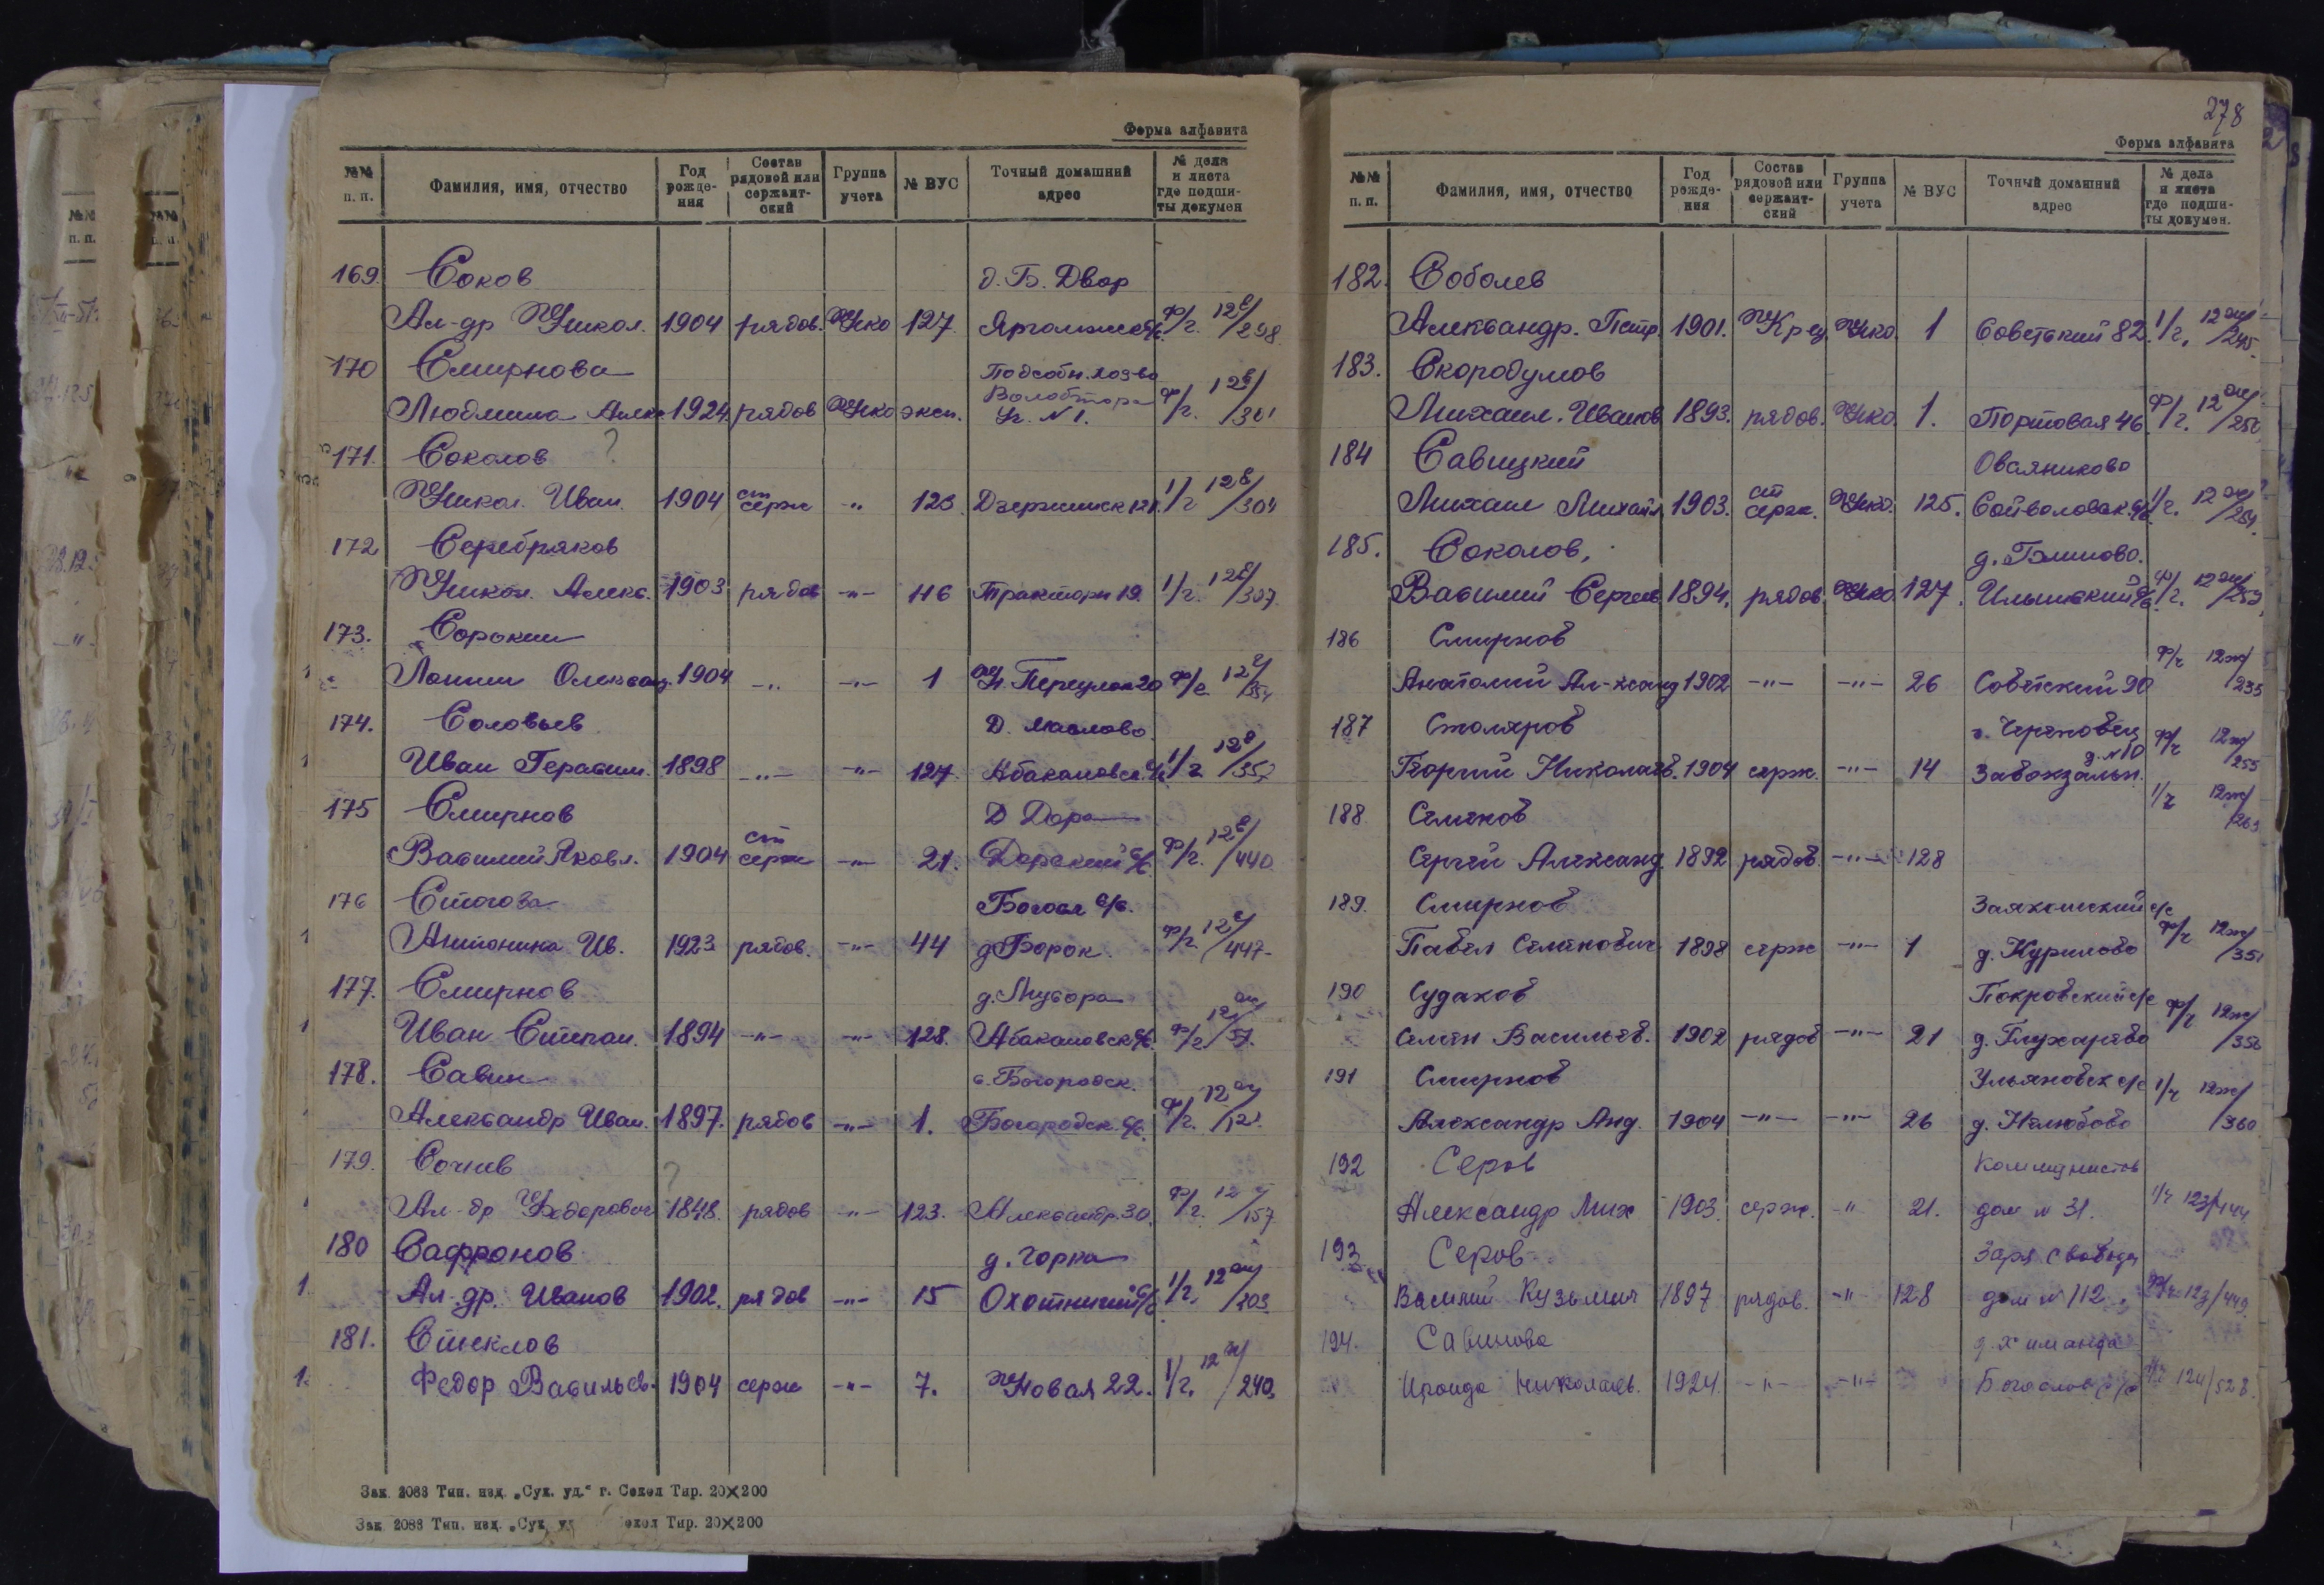 Форма алфавита
№№ п. п. Фамилия, имя, отчество Год рожде-ния Состав рядовой или сержант-ский Группа учета № ВУС Точный домашний адрес № дела и листа где подши-ты докумен
169. Соков д. Б. Двор
Ал-др Никол. 1904 рядов. Нко 127. ф/г. 12е/298
170 Смирнова Подсобн. хоз-во
Людмила Алек 1924 рядов Нко эксп. Уг. N 1. ф/г. 12е/301
171. Соколов ?
Никол. Иван. 1904 ст серж -"- 123. 1/г 12е/304
172 Серебряков
Никол. Алекс. 1903 рядов -"- 116 Трактори 19. 1/г. 12е/307
173. Сорокин
1904 -"- -"- 1 Переулок 20 ф/г 12е/354
174. Соловьев Д. Маслово
Иван Герасим. 1898 -"- -"- 127. Абакановск. с/с 1/г 12е/357
175 Смирнов Д Дора
Василий Яковл. 1904 ст серж -"- 21. Дорский с/с. ф/г. 12е/440
176 Стогова Богосл с/с.
1 Антонина Ив. 1923 рядов. -"- 44 д Борок. ф/г. 12е/447
177. Смирнов д. Мусора
1 Иван Степан. 1894 -"- -"- 128. Абакановск с/с. ф/г. 12ж/57.
178. Савин с. Богородск.
Александр Иван. 1897. рядов -"- 1. Богородск. с/с. ф/г. 12ж/121.
179. Сочнев ?
1 Ал-др Федорович 1848. рядов -"- 123. Александр. 30. ф/г. 12/157
180 Сафронов д. Горка
1. Ал-др. Иванов 1902. рядов -"- 15 Охотничий с/с 1/г. 12ж/203
181. Стеклов
1. Федор Васильев. 1904 серж -"- 7. Новая 22. 1/г. 12ж/240.
Зак. 2088 Тип. изд. „Сух. уд.“ г. Сокол Тир. 20×200
Зак 2088 Тип. изд. „Сух. у окол Тир. 20×200
278
Форма алфавита
№№ п. п. Фамилия, имя, отчество Год рожде-ния Состав рядовой или сержант-ский Группа учета № ВУС Точный домашний адрес № дела и листа где подши-ты докумен.
182. Соболев
Александр. Петр. 1901. Нко. 1 Советский 82. 1/г. 12ж/245.
183. Скородумов
Михаил. Иванов 1893. рядов. Нко. 1. Портовая 46. ф/г. 12ж/250
184 Савицкий Овсяниково
Михаил Михайл 1903. ст серж. Нко. 125. Сойволовск. с/с. 1/г. 12ж/251.
185. Соколов, д. Блиново.
Василий Сергеев 1894. рядов. Нко 127. Ильинский с/с. ф/г. 12ж/253.
186 Смирнов
Анатолий Ал-ксанд 1902 -"- -"- 26 Советский 90 ф/г 12ж/235
187 Столяров г. Череповец
Георгий Николаев. 1904 серж. -"- 14 Завокзальн. д. N 10 ф/г 12ж/255
188 Семенов
Сергей Александ. 1892 рядов. -"- 128 1/г 12ж/263
189. Смирнов с/с
Павел Семенович 1898 серж -"- 1 д. Курилово ф/г 12ж/351
190 Судаков Покровский с/с
Семен Васильев. 1902 рядов -"- 21 д. Глухарево ф/г 12ж/356
191 Смирнов Ульяновск с/с
Александр Анд. 1904 -"- -"- 26 д. Нелюбово 1/г 12ж/360
192 Серов Коммунистов
Александр Мих 1903. серж. -" 21. дом N 31. 1/г 12з/144
193 Серов Заря Свободы
Василий Кузьмич 1897 рядов. -" 128 дом N 112. ф/г 12з/449
194. Савинова
Ираида Николаев. 1924. -"- -"- Богослов с/с /528.